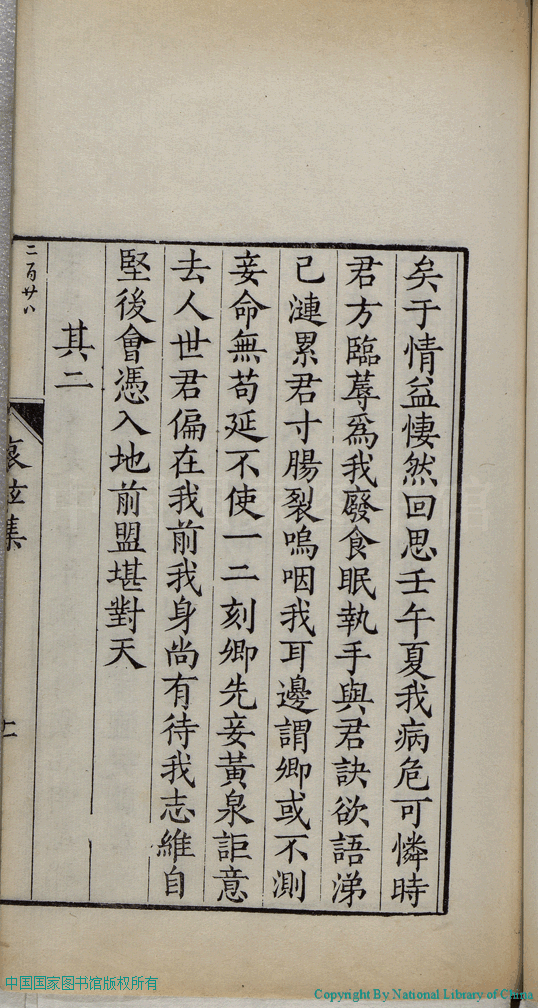 矣于情益悽然回思壬午夏我病危可憐時
君方臨蓐爲我廢食眠執手與君訣欲語涕
已漣累君寸腸裂嗚咽我耳邊謂卿或不測
妾命無苟延不使一二刻卿先妾黃泉詎意
去人世君偏在我前我身尚有待我志維自
堅後會憑入地前盟堪對天
其二
二百廿八
中国国家图书馆版权所有
Copyright By National Library of China